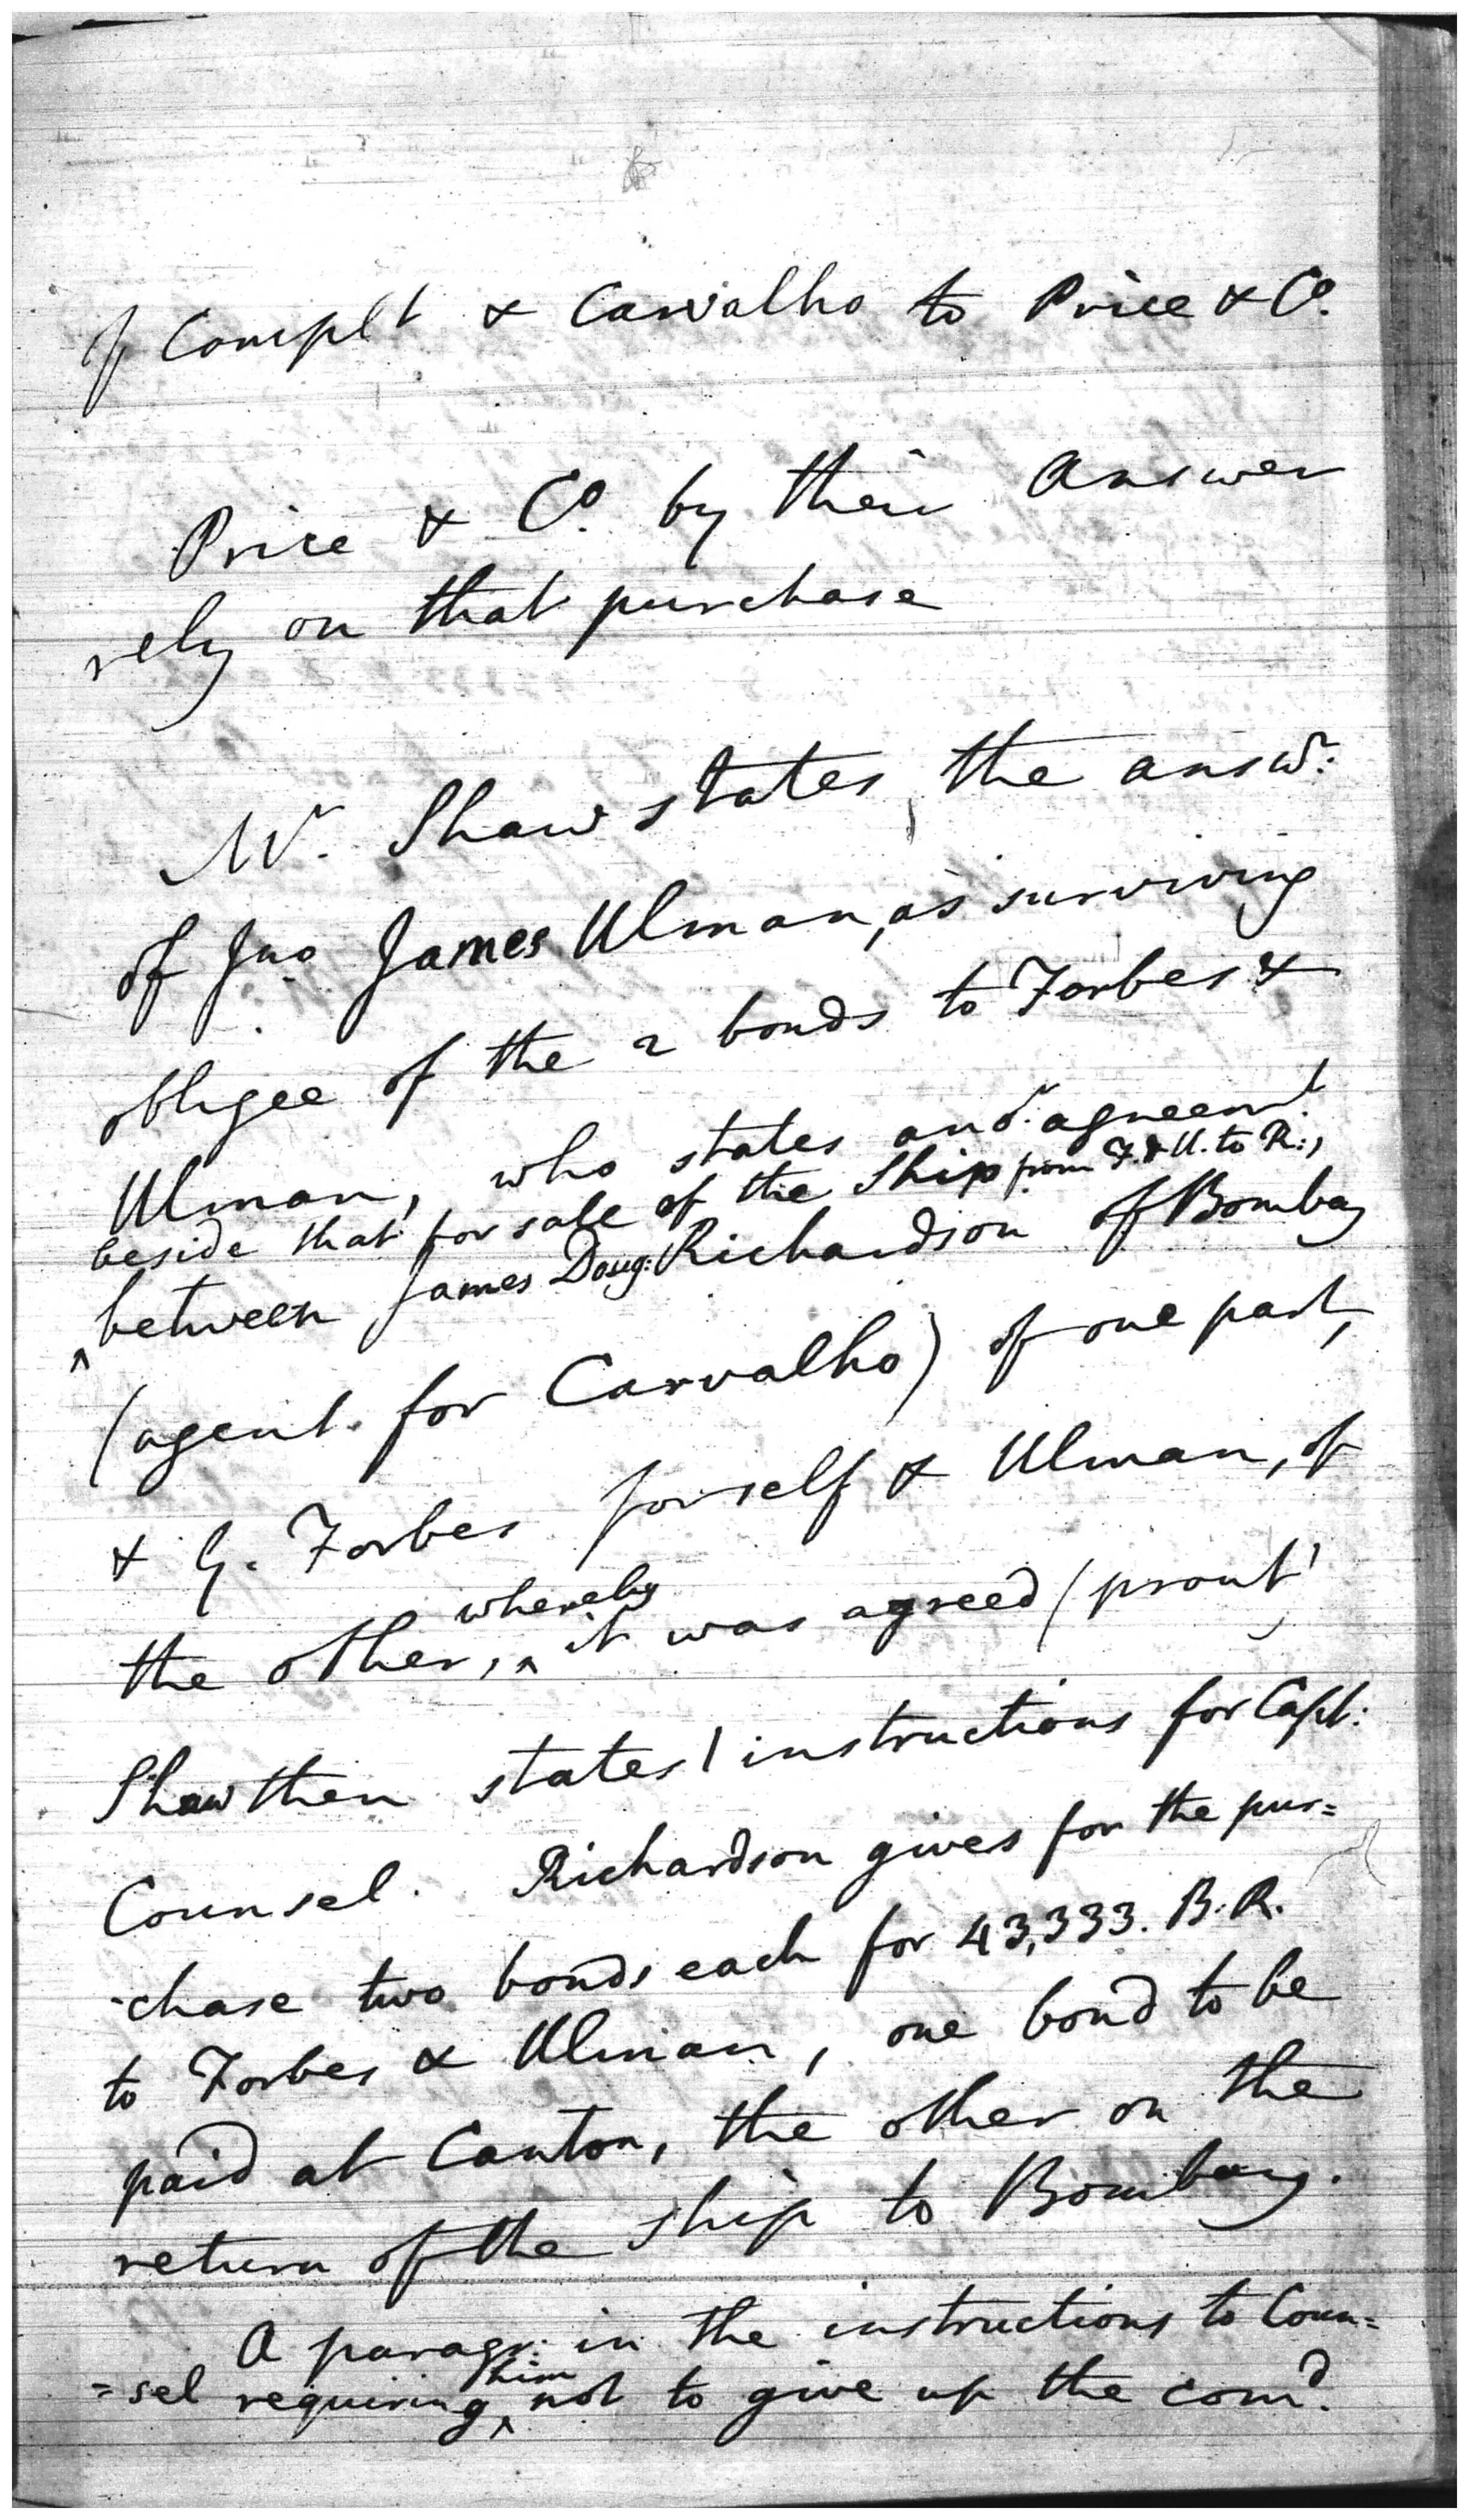 of Complt & Carvalho to Price & Co.
Price & Co. by their answer
rely on that purchase
Mr. Shaw states, the answr:
of Jno James Ulman, as surviving
obligee of the 2 bonds to Forbes &
Ulman, who states anor. agreemt.
beside that for sale of the Ship from F. & U. to R:,
^ between James Doug: Richardson of Bombay
(agent for Carvalho) of one part,
& G. Forbes for self & Ulman, of
whereby
the other, ^ it was agreed (prout
Shaw then states) instructions for Capt:
Counsel. Richardson gives for the pur=
-chase two bonds each for 43,333. B. R.
to Forbes & Ulman, one bond to be
paid at Canton, the other on the
return of the ship to Bombay.
A paragr: in the instructions to Coun=
him
=sel requiring ^ not to give up the comd.